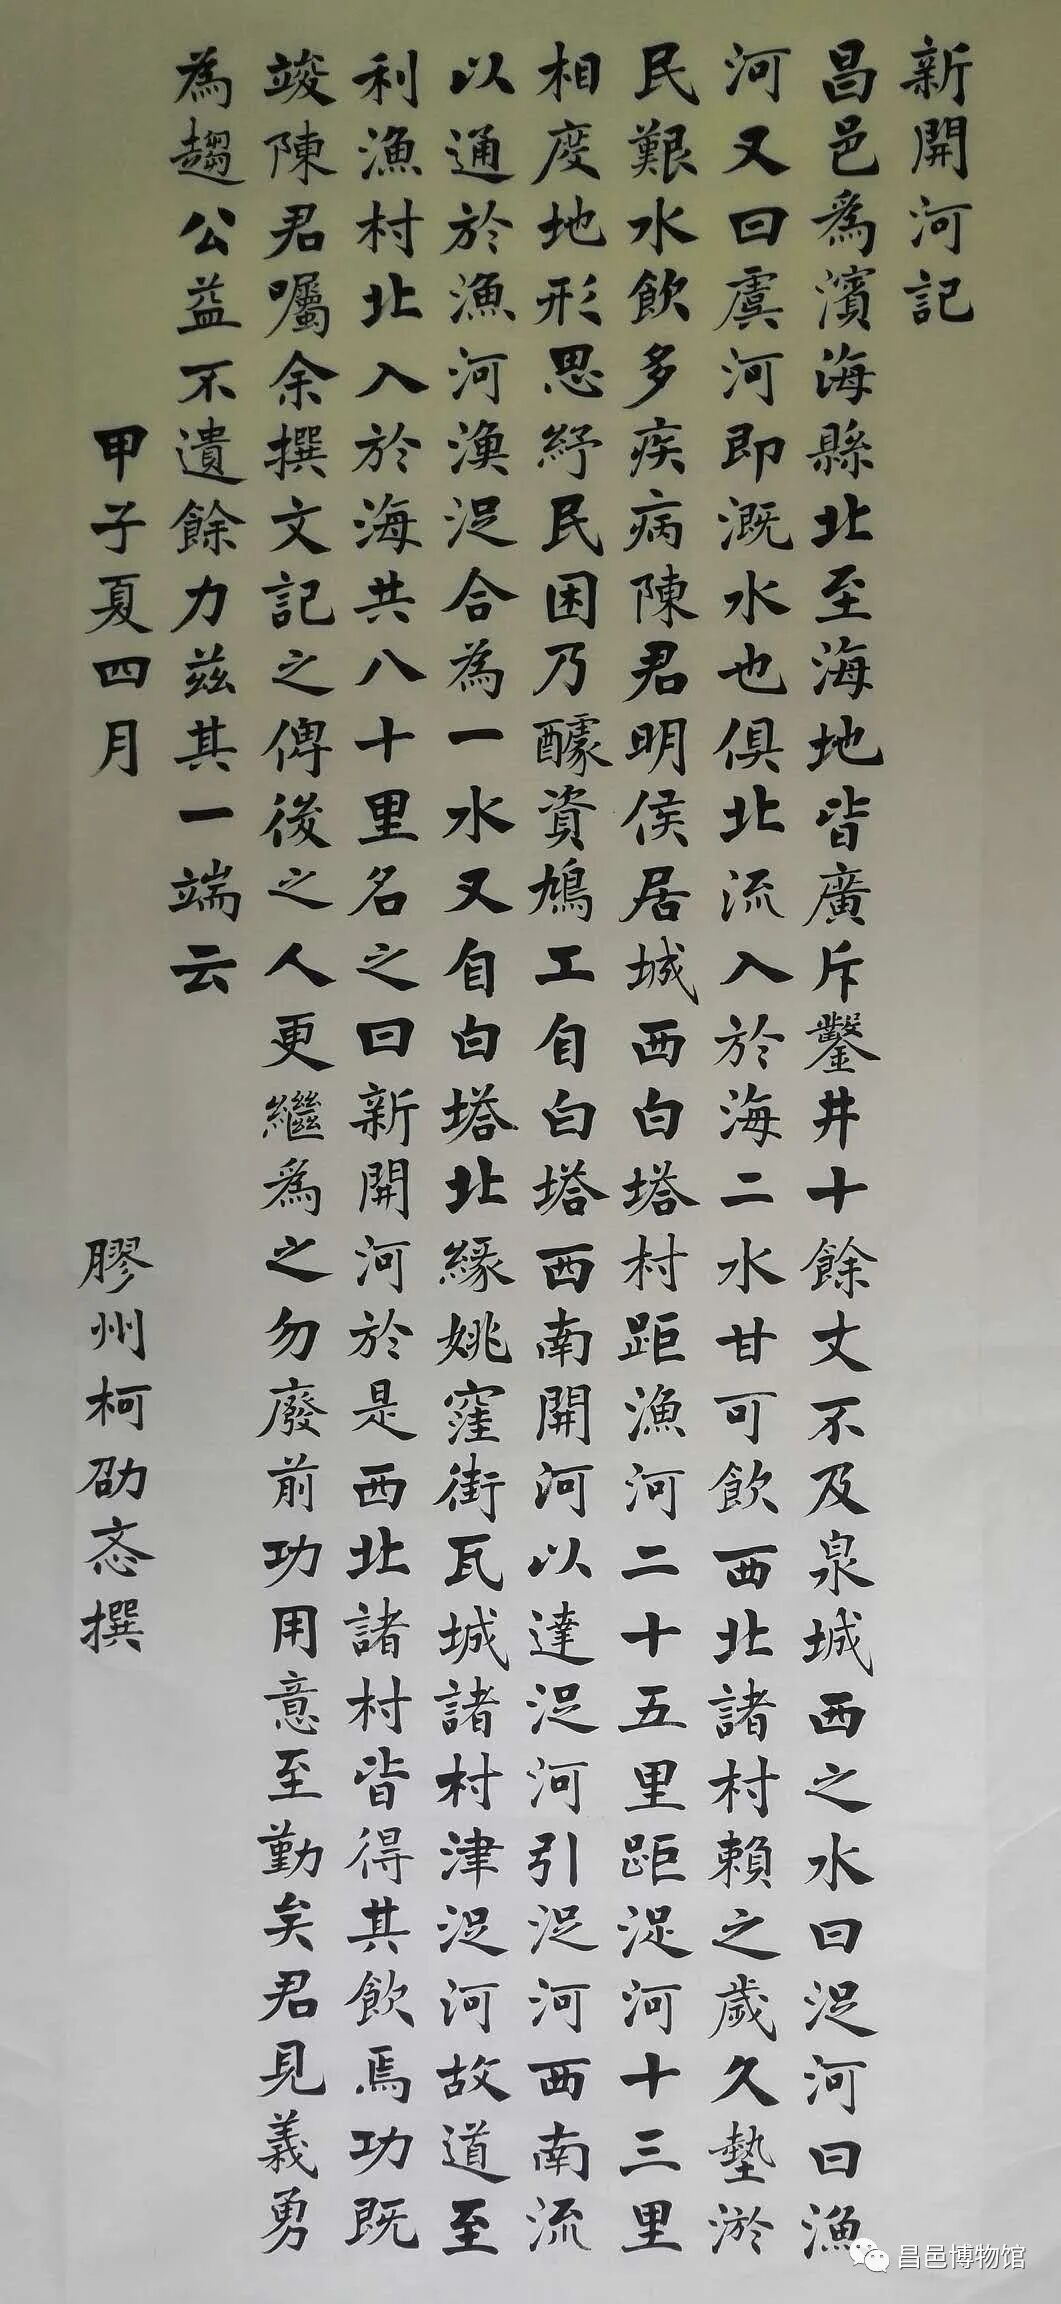 新開河記
昌邑爲濱海縣北至海地皆廣斥鑿井十餘丈不及泉城西之水曰浞河曰漁
河又曰虞河即溉水也俱北流入於海二水甘可飲西北諸村賴之歲久墊淤
民艱水飲多疾病陳君明侯居城西白塔村距漁河二十五里距浞河十三里
相度地形思紓民困乃醵資鳩工自白塔西南開河以達浞河引浞河西南流
以通於漁河漁浞合為一水又自白塔北緣姚窪街瓦城諸村津浞河故道至
利漁村北入於海共八十里名之曰新開河於是西北諸村皆得其飲焉功既
竣陳君囑余撰文記之俾後之人更繼為之勿廢前功用意至勤矣君見義勇
為趨公益不遺餘力茲其一端云
甲子夏四月
膠州柯劭忞撰
昌邑博物馆